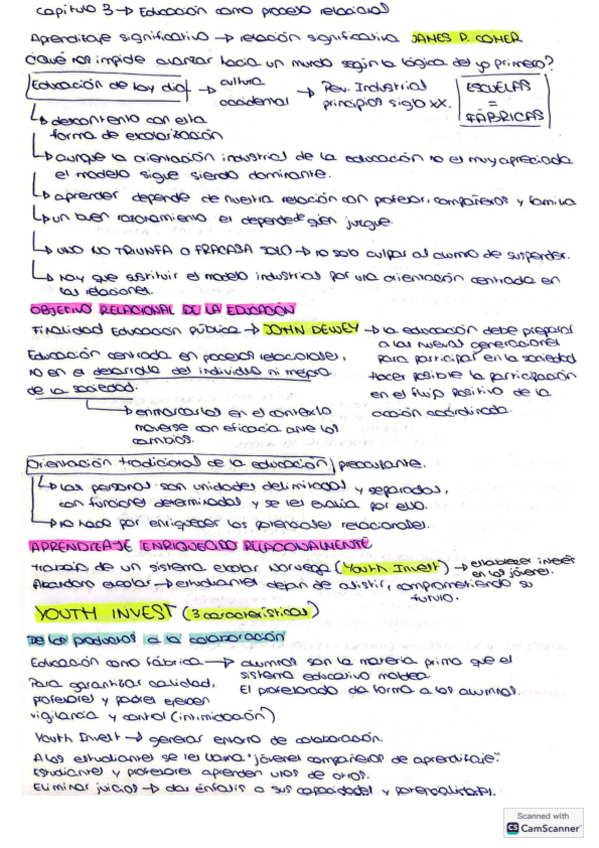 Capítulo 3 → Educación como proceso relacional
Aprendizaje significativo → relación significativa JAMES P. COMER
¿Qué nos impide avanzar hacia un mundo según la lógica del yo primero?
Educación de hoy día → cultura occidental → Rev. Industrial principios siglo XX. ESCUELAS = FÁBRICAS
↳ descontento con esta
forma de escolarización
↳ aunque la orientación industrial de la educación no es muy apreciada
el modelo sigue siendo dominante.
↳ aprender depende de nuestra relación con profesor, compañeros y familia
↳ un buen razonamiento es depende quién juzgue.
↳ UNO NO TRIUNFA O FRACASA SOLO → no solo culpar al alumno de suspender.
↳ Hay que sustituir el modelo industrial por una orientación centrada en
las relaciones.
OBJETIVO RELACIONAL DE LA EDUCACIÓN
Finalidad Educación Pública → JOHN DEWEY → la educación debe preparar
a las nuevas generaciones
para participar en la sociedad
Hacer posible la participación
en el flujo positivo de la
acción coordinada.
Educación centrada en procesos relacionales,
no en el desarrollo del individuo ni mejora
de la sociedad.
↳ enmarcarlos en el contexto
moverse con eficacia ante los
cambios.
Orientación tradicional de la educación preocupante.
↳ Las personas son unidades delimitadas y separadas,
con funciones determinadas y se les evalúa por ello.
↳ no hace por enriquecer los potenciales relacionales.
APRENDIZAJE ENRIQUECIDO RELACIONALMENTE
Trabajo de un sistema escolar Noruega (Youth Invest) → establecer interés
en los jóvenes.
Abandono escolar → estudiantes dejan de asistir, comprometiendo su
futuro.
YOUTH INVEST (3 características)
De los productos a la colaboración
Educación como fábrica → alumnos son la materia prima que el
sistema educativo moldea
El profesorado da forma a los alumnos.
Para garantizar calidad,
profesores y padres ejercen
vigilancia y control (intimidación)
Youth Invest → generar entorno de colaboración.
A los estudiantes se les llama "jóvenes compañeros de aprendizaje."
Estudiantes y profesores aprenden unos de otros.
Eliminar juicios → dar énfasis a sus capacidades y potencialidades.
Scanned with
CS CamScanner